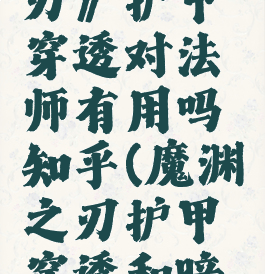 刃》护甲
穿透对法
师有用吗
知乎(魔渊
之刃护甲
穿透和暗